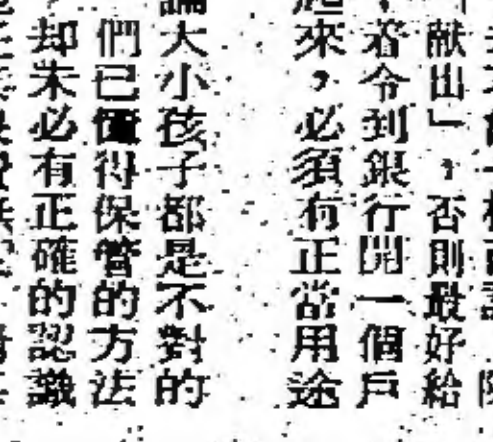 献出」，否則最好給
着令到銀行開一個戶
來，必須有正當用途
論大小孩子都是不對的
們已懂得保管的方法
却未必有正確的認識